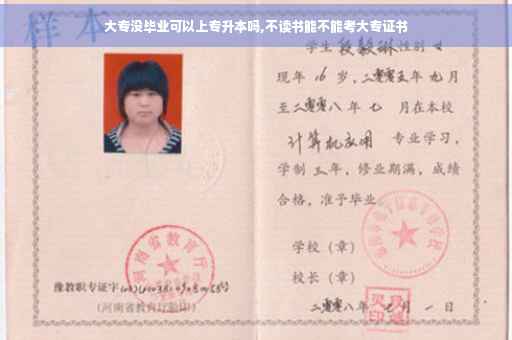 大专没毕业可以上专升本吗,不读书能不能考大专证书
样本
学生 段毅琳 性别 女
现年 16 岁，二零零五年 九 月
至二零零八 年 七 月在本校
计算机应用 专业学习，
学制 三 年，修业期满，成绩
合格，准予毕业
学校（章）
校长（章）
河南省教育厅
豫教职专证字
（河南省教育厅验印）
二零零八年 七 月 一 日